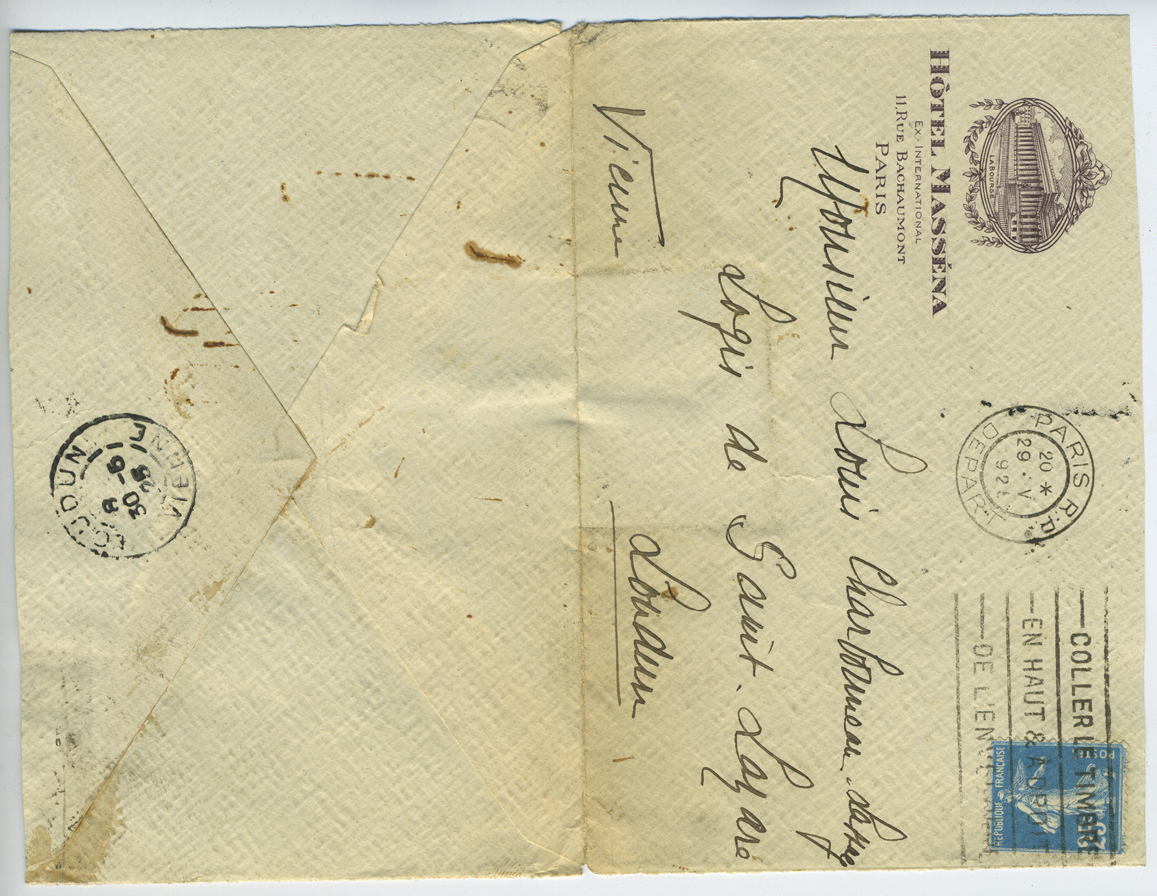 LA BOURSE
HÔTEL MASSÉNA
EX-INTERNATIONAL
11, RUE BACHAUMONT
PARIS
PARIS R.P.
20 *
29 · V
DEPART
COLLER LE TIMBRE
EN HAUT & A DR
DE L'EN
REPUBLIQUE FRANÇAISE
POSTES
25
Monsieur Louis Charbonneau
Logis de Saint. Lazare
Loudun
Vienne
LOUDUN
30 - 5
25
VIENNE